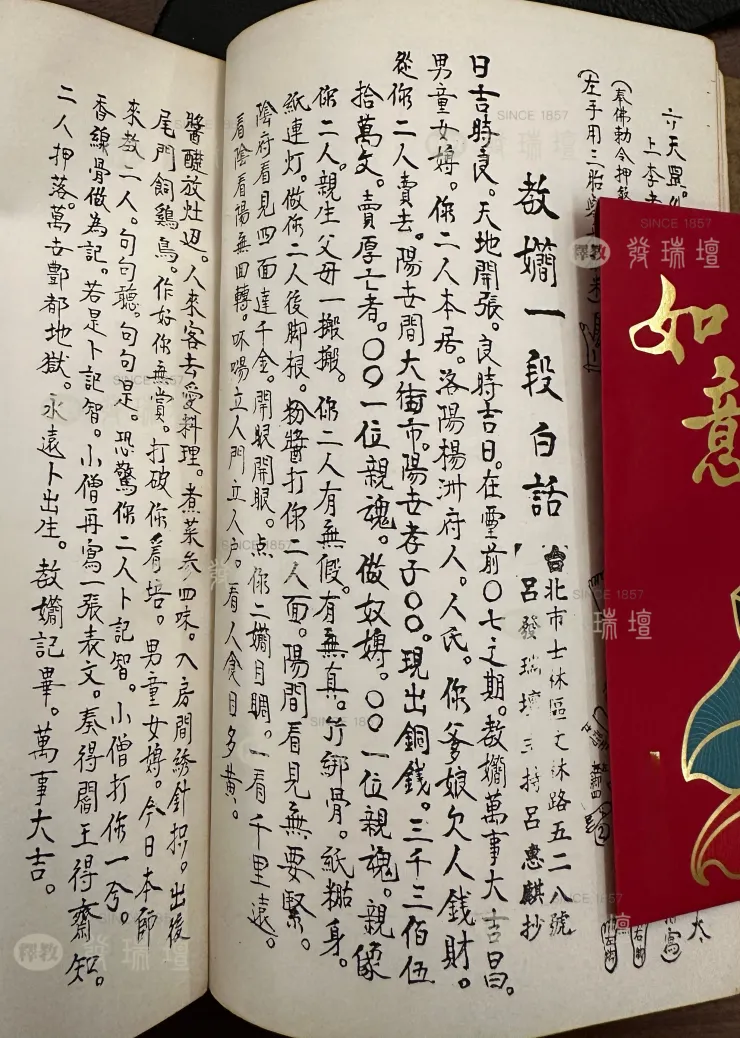 六天罡。
上李老
(奉佛勅令押煞
(左手用三胎
教嫺一段白話
台北市士林區文林路五二八號
呂發瑞壇主持呂惠麒抄
日吉時良。天地開張。良時吉日。在靈前〇七之期。教嫺萬事大吉昌。
男童女婢。你二人本居。洛陽楊洲府人。人民。你爹娘欠人錢財。
從你二人賣去。陽去間大街市。陽去孝子〇〇。現出銅錢。三千三佰伍
拾萬文。賣厚亡者。〇〇一位親魂。做奴婢。〇〇一位親魂。親像
你二人。親生父母一搬搬。你二人有無假。有無真。竹綁骨。紙糊身。
紙連灯。做你二人後脚根。粉醬打你二人面。陽間看見無要緊。
陰府看見四面達千金。開眼開眼。点你二嫺目睭。一看千里遠。
看陰看陽無回轉。呩喝立人門立人戶。看人食目多黃。
醬醋放灶邊。人來客去愛料理。煮菜参四味。入房間綉針拐。出後
尾門飼鷄鳥。作好你無賞。打破你着培。男童女婢。今日本師
來教二人。句句聽。句句是。恐驚你二人卜記智。小僧打你一夸。
香線骨做為記。若是卜記智。小僧再寫一張表文。奏得閻王得齋知。
二人押落。萬去酆都地獄。永遠卜出生。教嫺記畢。萬事大吉。
如意
SINCE 1857
釋教 發瑞壇